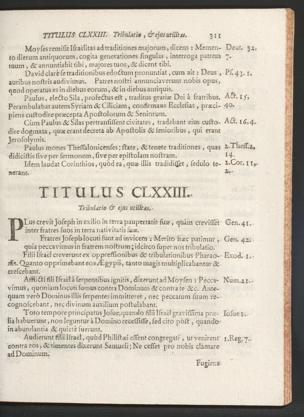 TITULUS CLXXIII. Tribulatio & ejus utilitas. 311
Moyses remisit Israëlitas ad traditiones majorum, dicens: Memen- Deut. 32.
to dierum antiquorum, cogita generationes singulas, interroga patrem 7.
tuum, & annuntiabit tibi, majores tuos, & dicent tibi.
David clarè se traditionibus edoctum pronuntiat, cum ait: Deus, Ps. 43. 1.
auribus nostris audivimus. Patres nostri annuntiaverunt nobis opus,
quod operatus es in diebus eorum, & in diebus antiquis.
Paulus, electo Sila, profectus est, traditus gratiæ Dei à fratribus. Act. 15.
Perambulabat autem Syriam & Ciliciam, confirmans Ecclesias, præci- 40.
piens custodire præcepta Apostolorum & Seniorum.
Cùm Paulus & Silas pertransissent civitates, tradebant eius custo- Act. 16. 4.
dire dogmata, quæ erant decreta ab Apostolis & senioribus, qui erant
Jerosolymis.
Paulus monet Thessalonicenses; state, & tenete traditiones, quas 2. Thess. 2.
didicistis sive per sermonem, sive per epistolam nostram. 14.
Idem laudat Corinthios, quòd ea, quæ illis tradidisset, sedulo te- 1. Cor. 11.
nerent. 2.
TITULUS CLXXIII.
Tribulatio & ejus utilitas.
PLus crevit Joseph in exilio in terra paupertatis suæ, quàm crevisset Gen. 41.
inter fratres suos in terra nativitatis suæ.
Fratres Josephi locuti sunt ad invicem: Merito hæc patimur, Gen. 42.
quia peccavimus in fratrem nostrum; idcirco super nos tribulatio.
Filii Israël creverunt ex oppressionibus & tribulationibus Pharao- Exod. 1.
nis. Quanto opprimebant eos Ægyptii, tanto magis multiplicabantur &
crescebant.
Afflicti filii Israël à serpentibus ignitis, dixerunt ad Moysen: Pecca- Num. 21.
vimus, quoniam locuti sumus contra Dominum & contra te &c. Ante-
quam verò Dominus illis serpentes immitteret, nec peccatum suum re-
cognoscebant, nec divinum auxilium postulabant.
Toto tempore principatus Josue, quando filii Israël gravissima præ- Josue 1.
lia habuerunt, non leguntur à Domino recessisse, sed cito post, quando
in abundantia & quiete fuerunt.
Audierunt filii Israël, quòd Philistæi essent congregati, ut venirent 1. Reg. 7.
contra eos, & timentes dixerunt Samueli; Ne cesses pro nobis clamare
ad Dominum.
Fugiens